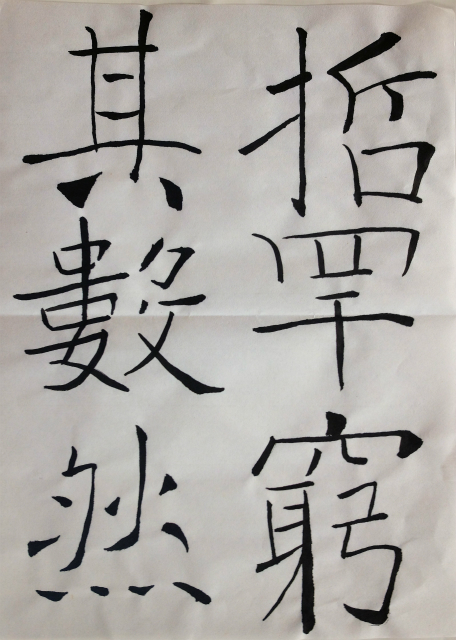 哲罕窮
其數然